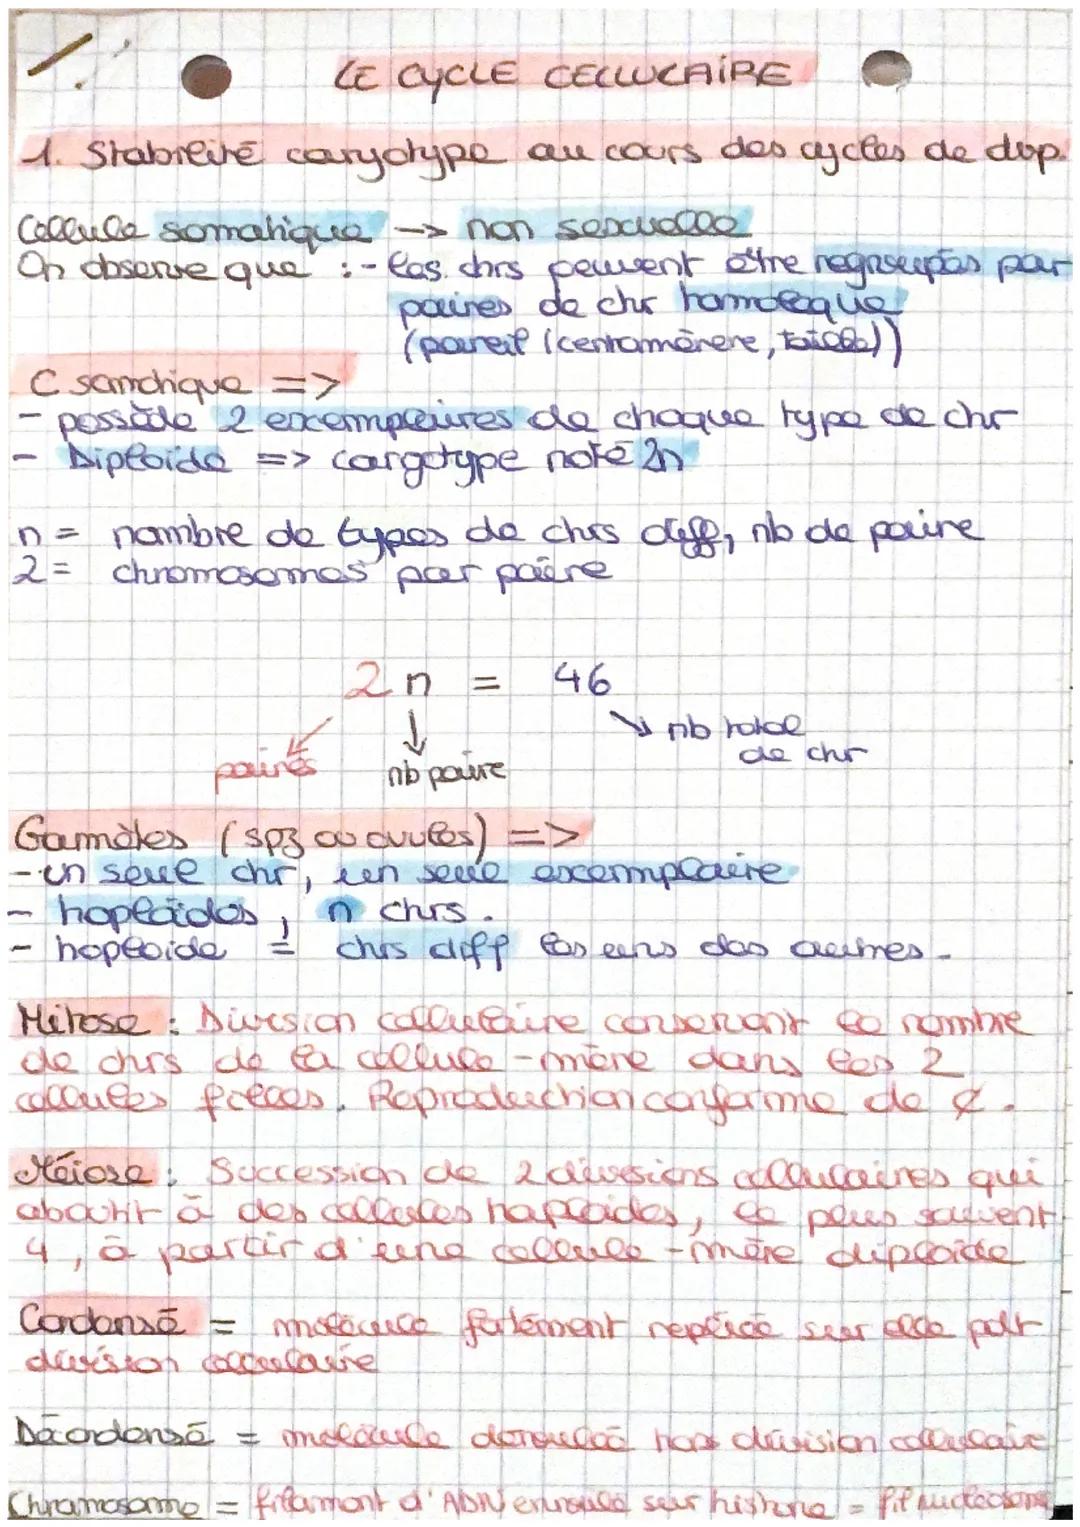 LE CYCLE CELLULAIRE
1. Stabilité caryotype au cours des cycles de dvp.
Cellule somatique → non sexuelle
On observe que :- les chrs peuvent être regroupés par
paires de chr homologue
(pareil (centromère, taille))
C somatique =>
- possède 2 excemplaires de chaque type de chr
- Diploïde => caryotype noté 2n
n = nombre de types de chrs diff, nb de paire
2 = chromosomes par paire
2n = 46
nb total
de chr
paires nb paire
Gamètes (spz ou ovules) =>
- un seul chr, un seul excemplaire
- haploïdes, n chrs.
- haploïde = chrs diff les uns des autres.
Mitose : Division cellulaire conservant le nombre
de chrs de la cellule-mère dans les 2
cellules filles. Reproduction conforme de ¢.
Méiose : Succession de 2 divisions cellulaires qui
aboutit à des cellules haploïdes, le plus souvent
4, à partir d'une cellule-mère diploïde
Condensé = molécule fortement repliée sur elle pdt
division cellulaire
Décondensé = molécule déroulée hors division cellulaire
Chromosome = filament d'ADN enroulé sur histone = fil nucléosome